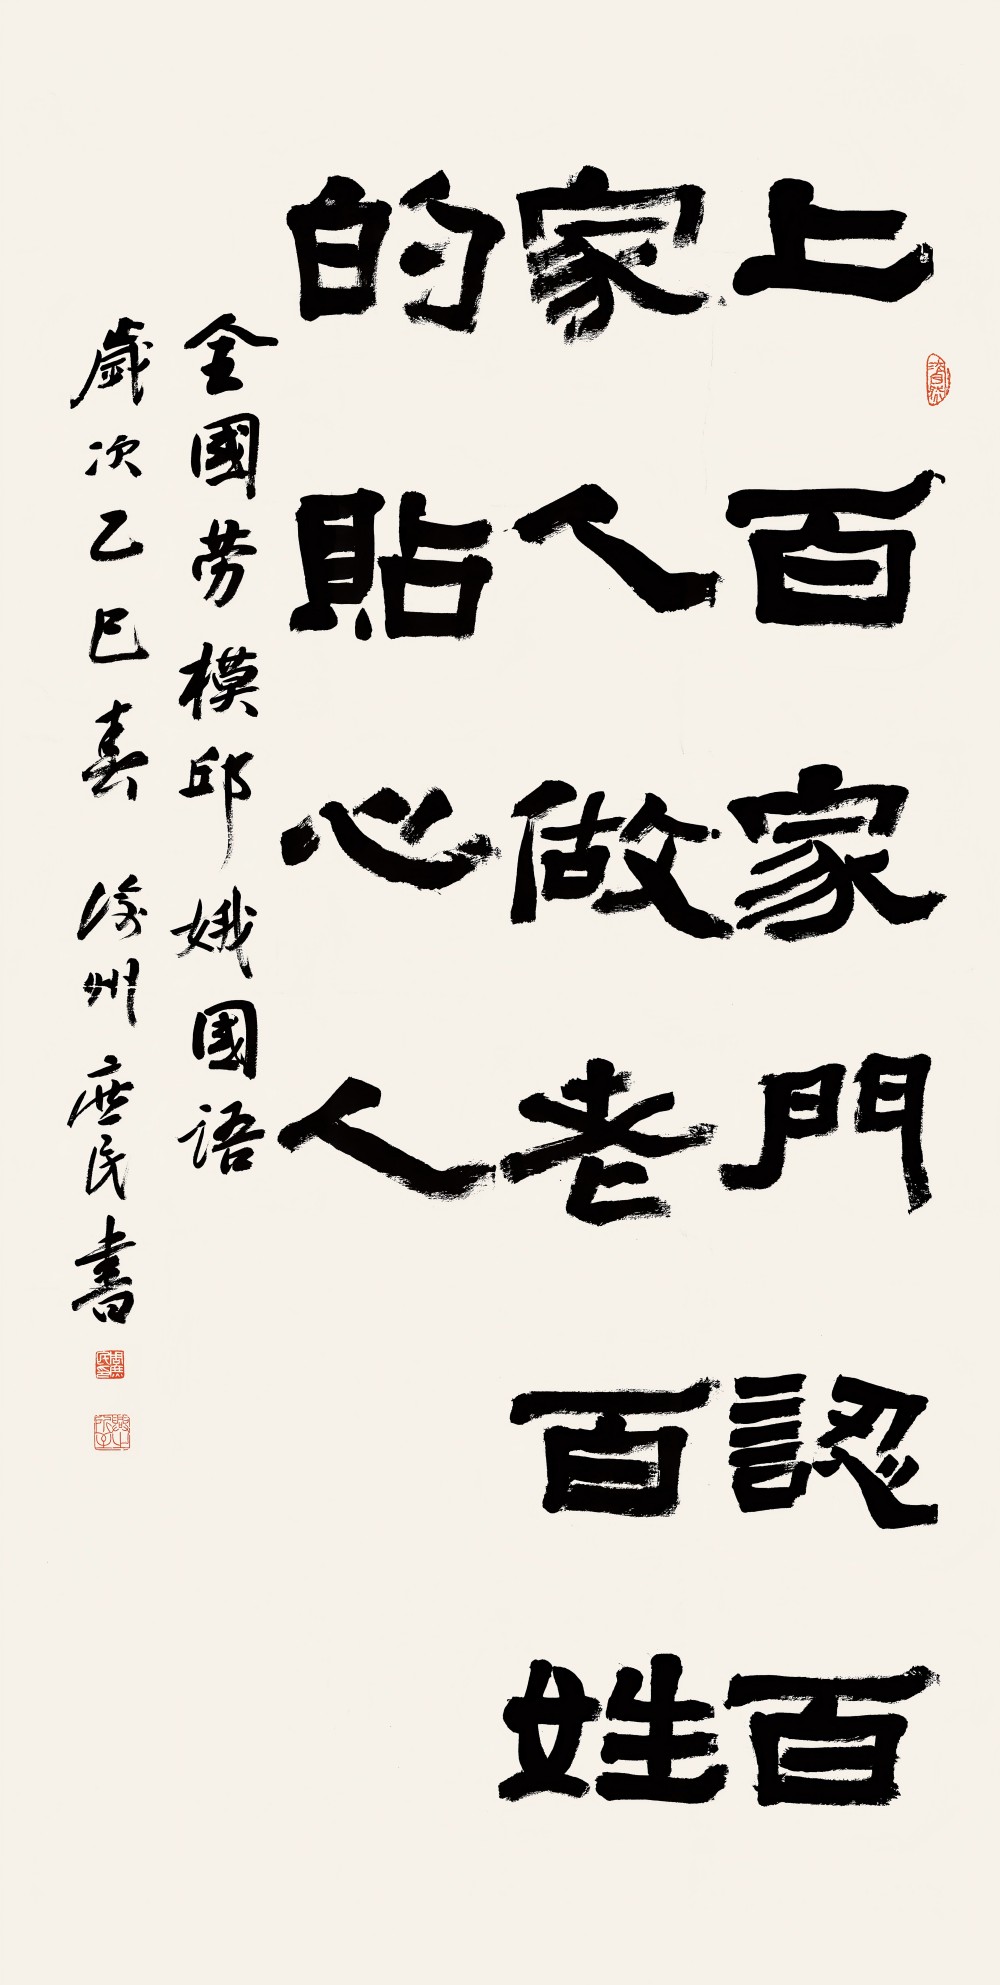 上百家門認百
家人做老百姓
的貼心人
全國劳模邱娥國語
歲次乙巳春渝州庶民書